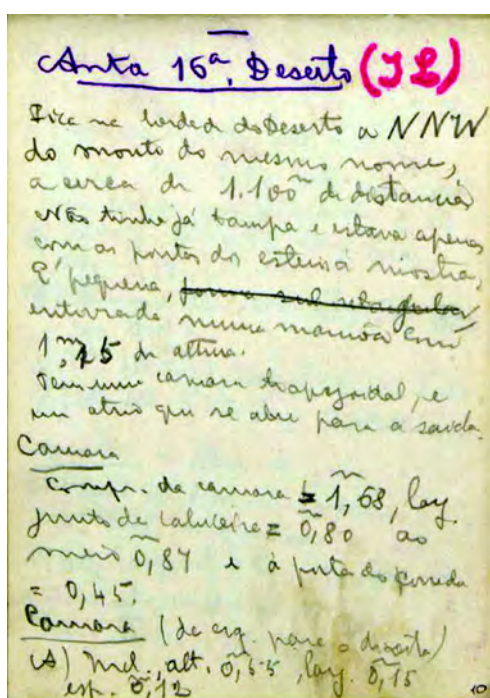 Anta 16ª, Deserto (IL)
Fica na herdade do Deserto a NNW
do monte do mesmo nome,
a cerca de 1.100m de distancia
Não tinha já tampa e estava apenas
com as pontas dos esteios á mostra,
E' pequena, forma sub rectangular
enterrada numa mamôa com
1m,25 de altura.
Tem uma camara trapezoidal, e
um atrio que se abre para a saida.
Camara
Compr. da camara = 1m,68, larg.
junto da cabeceira = 0m,80 ao
meio 0m,87 e á porta do corredor
= 0,45.
Camara (de esq. para a direita)
(A) Ind., alt. 0m,55, larg. 0m,15
esp. 0m,12
10